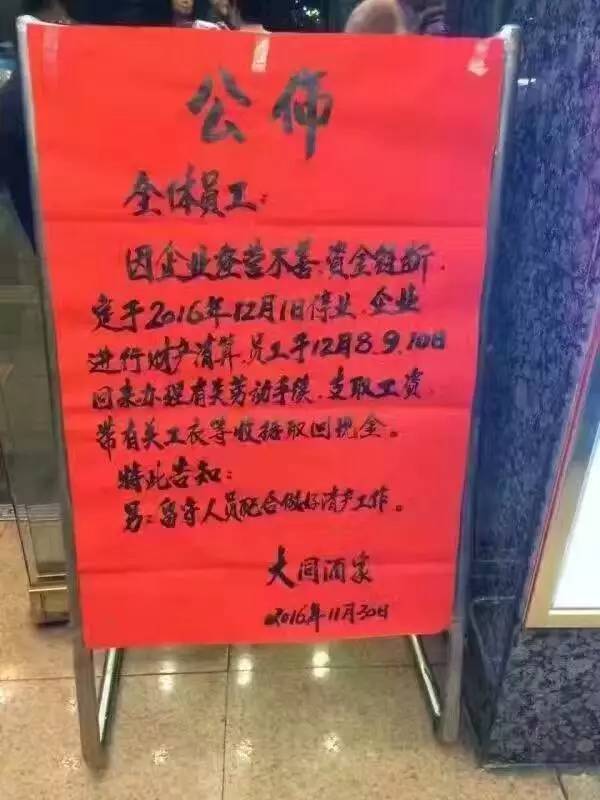 公佈
全体员工：
因企业经营不善、资金链断，
定于2016年12月1日停业，企业
进行财产清算，员工于12月8.9.10日
回来办理有关劳动手续，支取工资，
带有关工衣等收据取回现金。
特此告知：
另：留守人员配合做好清产工作。
大同酒家
2016年11月30日